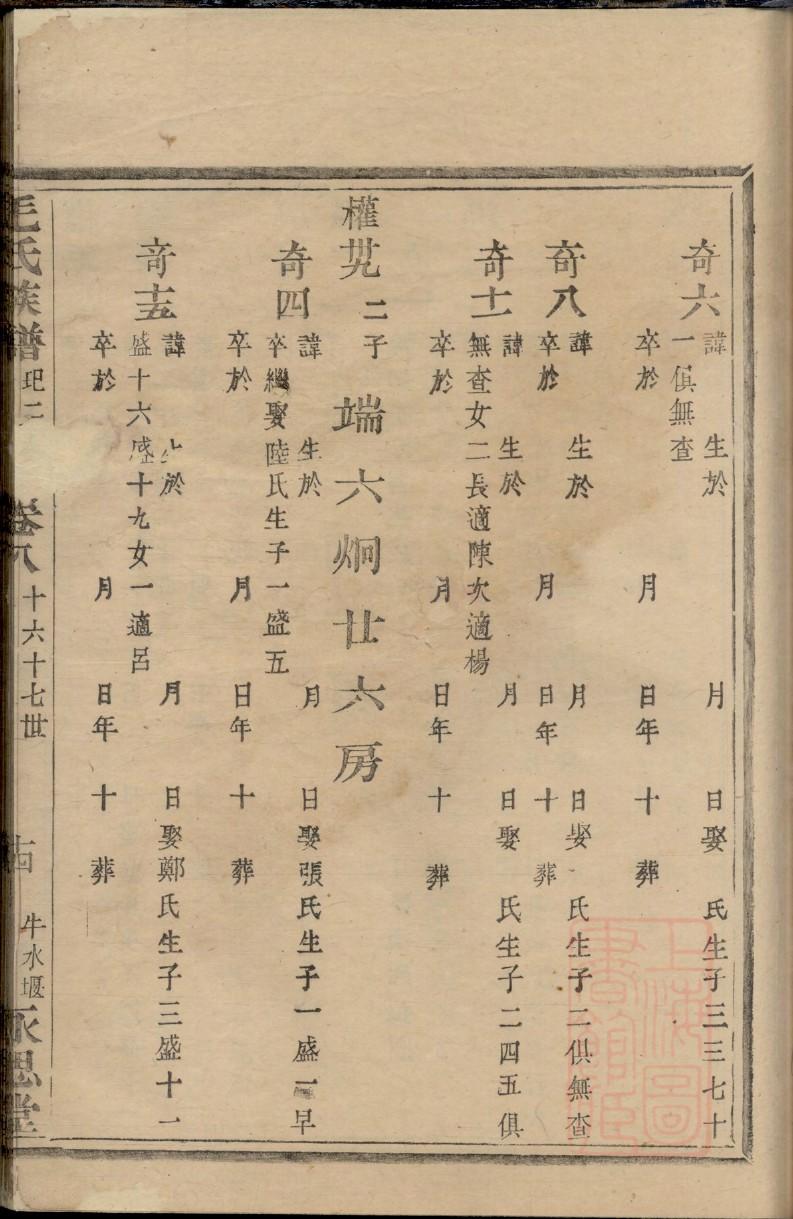 奇六
諱 生於 月 日娶 氏生子三三七十
一俱無查
卒於 月 日年 十 葬
奇八
諱 生於 月 日娶 氏生子二俱無查
卒於 月 日年 十 葬
奇十一
諱 生於 月 日娶 氏生子二四五俱
無查女二長適陳次適楊
卒於 月 日年 十 葬
權廿九 二子 端六炯廿六房
奇四
諱 生於 月 日娶張氏生子一盛一早
卒繼娶陸氏生子一盛五
卒於 月 日年 十 葬
奇十五
諱 生於 月 日娶鄭氏生子三盛十一
盛十六盛十九女一適呂
卒於 月 日年 十 葬
毛氏族譜 卷八 十六十七世 牛水堰 永思堂
上海圖書館藏